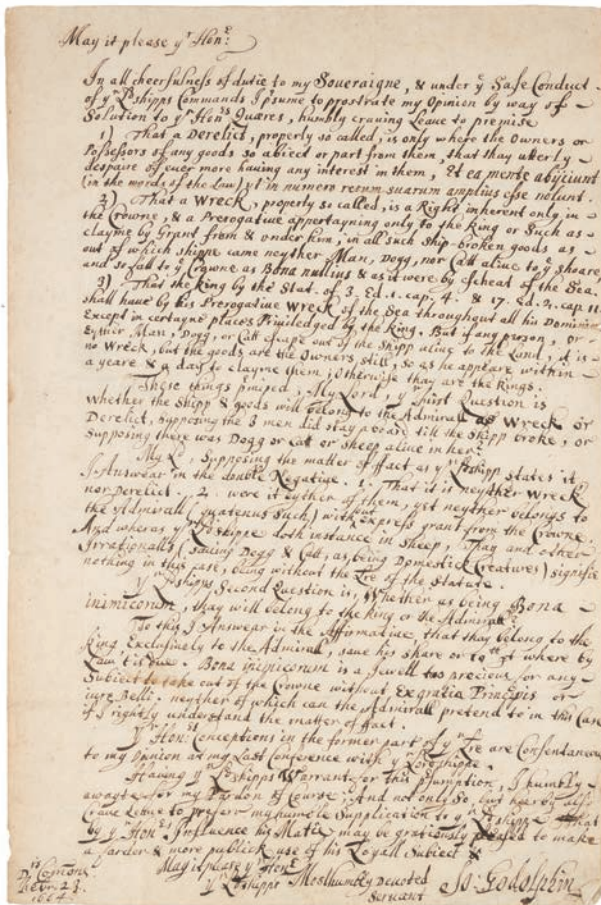 May it please yr Honr:
In all cheerfulness of dutie to my Soveraigne, & under ye Safe Conduct
of yr Lshipps Commands I psume to prostrate my Opinion by way of
Solution to yr Honrs Quæres, humbly craving Leave to premise
1) That a Derelict, properly so called, is only where the Owners or
Possessors of any goods so abiect or part from them, that thay utterly
despaire of ever more having any interest in them, Et ea mente abijciunt
(in the words of the Law) yt in numero rerum suarum amplius esse nolunt.
2) That a Wreck, properly so called, is a Right inherent only in
the Crowne, & a Prerogative appertayning only to the King or Such as
clayme by Grant from & under him, in all such Ship-broken goods as
out of which shippe came neyther Man, Dogg, nor Catt alive to ye shoare,
and so fall to ye Crowne as Bona nullius & as it were by Escheat of the Sea.
3) That the King by the Stat. of 3. Ed. 1. cap. 4. & 17. Ed. 2. cap. 11.
shall have by his Prerogative Wreck of the Sea throughout all his Dominions
Except in certayne places Priviledged by the King. But if any person, or
Eyther Man, Dogg, or Catt escape out of the Shipp alive to the Land, it is
no Wreck, but the goods are the Owners still, so as he appeare within
a yeare & a day to clayme them; Otherwise thay are the Kings.
These things pmised, My Lord, yr first Question is
Whether the Shipp & goods will belong to the Admirall as Wreck or
Derelict, supposing the 3 men did stay aboard till the Shipp broke, or
Supposing there was Dogg or Catt or Sheep alive in her?
My Lo, Supposing the matter of ffact as yr Lshipp states it
I Answear in the double Negative. 1. That it is neyther Wreck
nor Derelict. 2. were it eyther of them, yet neyther belongs to
the Admirall (quatenus Such) without Express grant from the Crowne.
And wheras yr Lshippe doth instance in Sheep, Thay and other
Irrationalls (saving Dogg & Catt, as being Domestick Creatures) signifie
nothing in this case, being without the Lre of the Statute.
Yr Lshipps Second Question is, Whether as being Bona
inimicorum, thay will belong to the King or the Admirall?
To this I Answear in the Affirmative, that thay belong to the
King, Exclusively to the Admirall, save his share or 10th pt where by
Law it is due. Bona inimicorum is a Jewell too precious for any
Subiect to take out of the Crowne without Ex gratia Principis or
iure Belli, neyther of which can the Admirall pretend to in this Case
if I rightly understand the matter of ffact.
Yr Honrs Conceptions in the former part of yr Lre are Consentaneous
to my Opinion at my Last Conference with yr Lordshippe.
Having yr Lshipps Warrant for this psumption, I humbly
awayte for my Pardon of Course; And not only So, but hearby also
Crave Leave to preferr my humble Supplication to yr Lshippe That
by yr Honrs Influence his Matie may be gratiously pleased to make
a farder & more publick use of his Loyall Subiect &
May it please yr Honr
yr Lshipps Most humbly Devoted
Servant
Jo: Godolphin
Drs Comons.
Febr. 23.
1664.